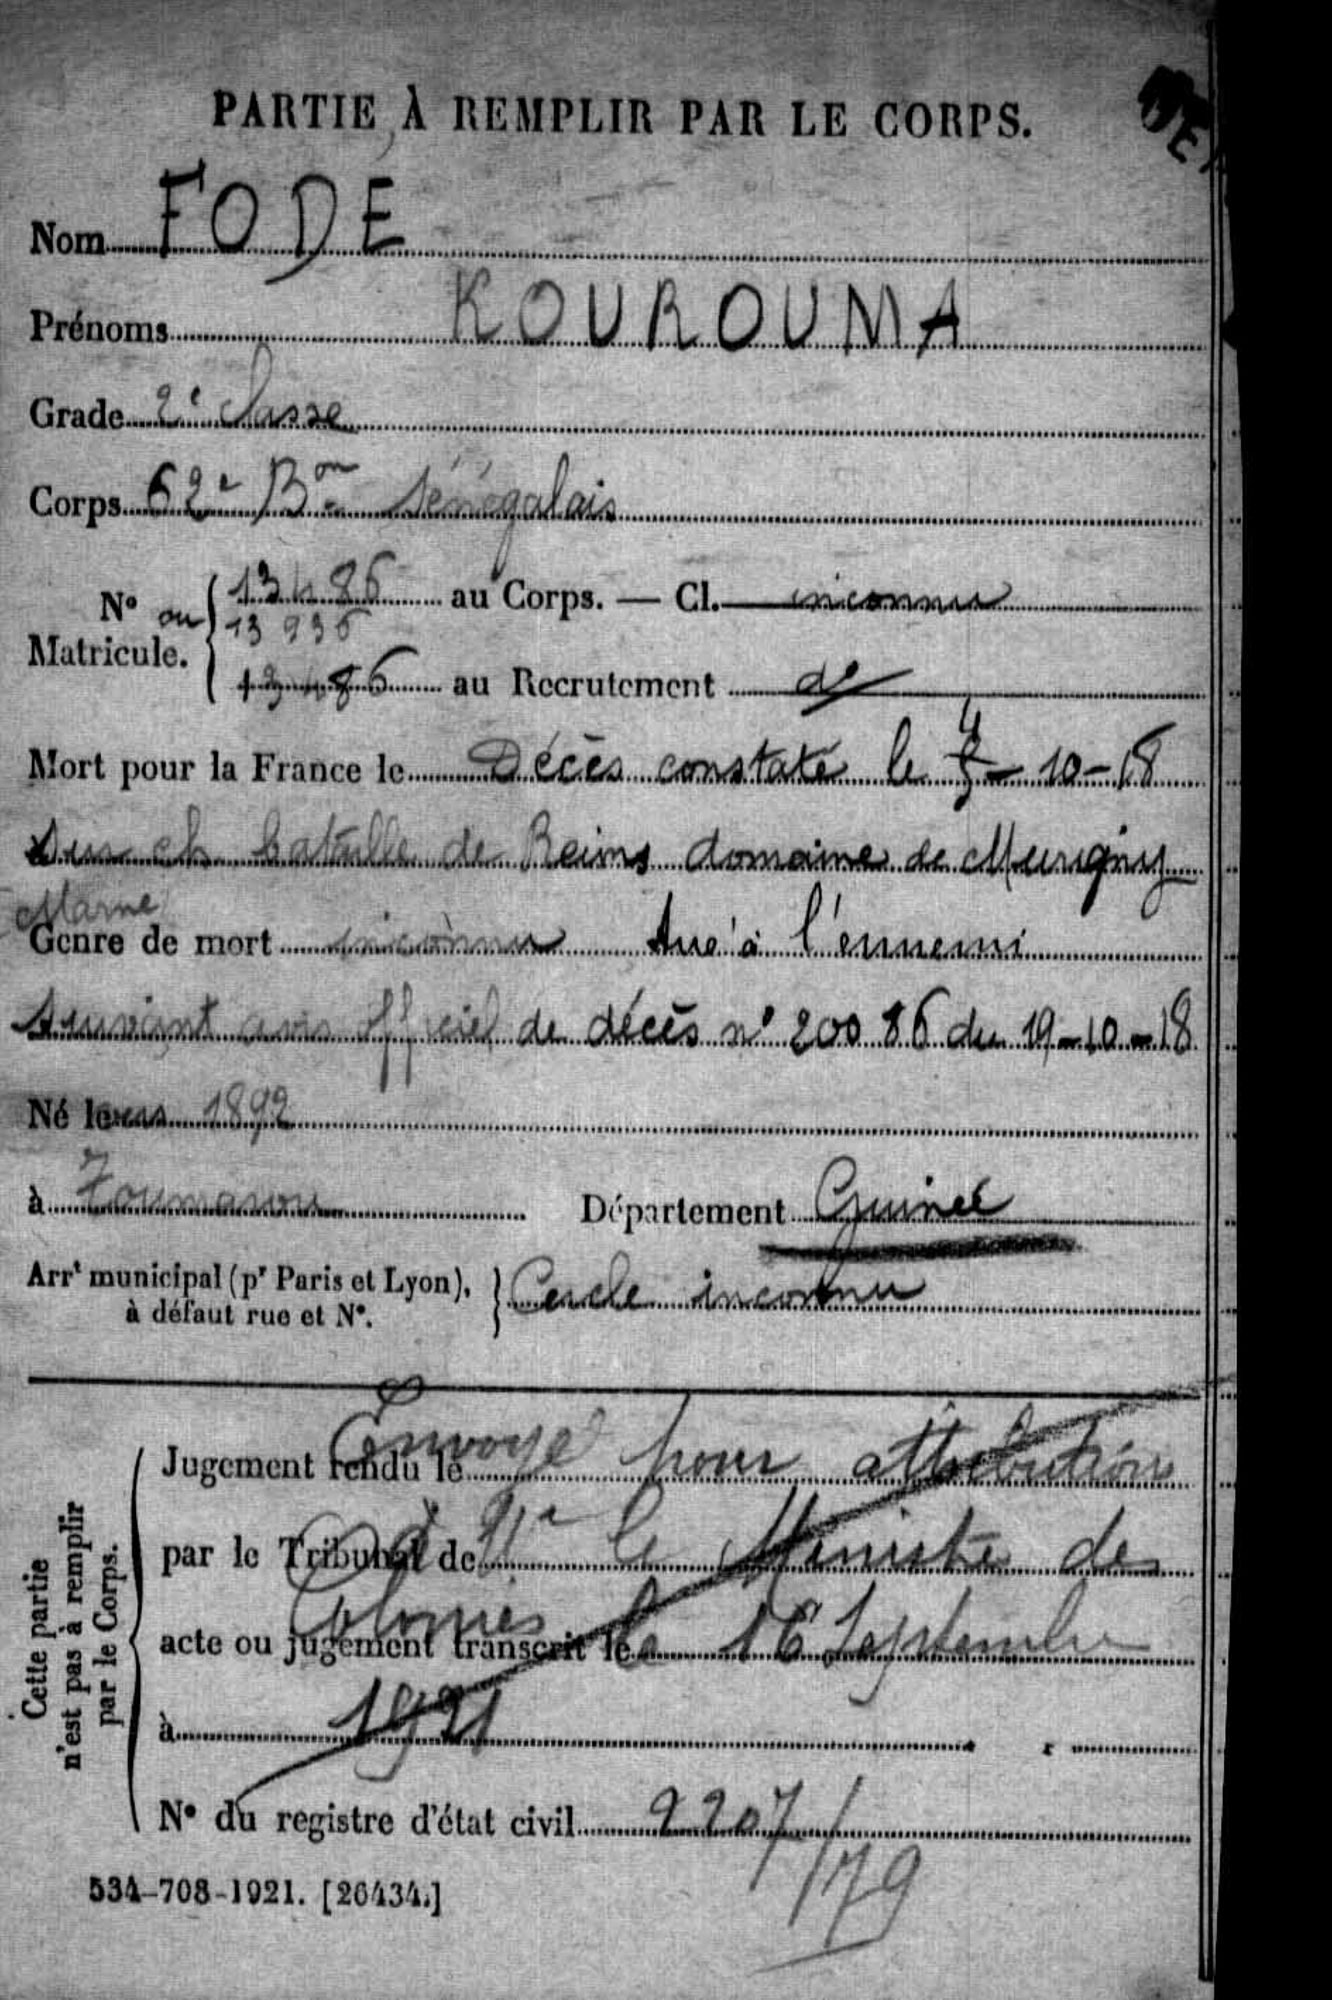 PARTIE À REMPLIR PAR LE CORPS.
Nom FODE
Prénoms KOUROUMA
Grade 2e classe
Corps 62e Bon Sénégalais
No ou Matricule. 13486 au Corps. — Cl. inconnu
13936
13486 au Recrutement do
Mort pour la France le Décès constaté le 4 - 10-18
Sur ch bataille de Reims domaine de Murigny
Marne
Genre de mort inconnu tué à l'ennemi
Suivant avis officiel de décès no 20086 du 19-10-18
Né le vers 1892
à Toumanou Département Guinée
Arrt municipal (pr Paris et Lyon), à défaut rue et No. Cercle inconnu
Cette partie n'est pas à remplir par le Corps.
Jugement rendu le Envoyé pour attribution
par le Tribunal de à Mr le Ministre des
acte ou jugement transcrit le Colonies le 16 Septembre
à 1921
No du registre d'état civil 2207/79
534-708-1921. [26434.]